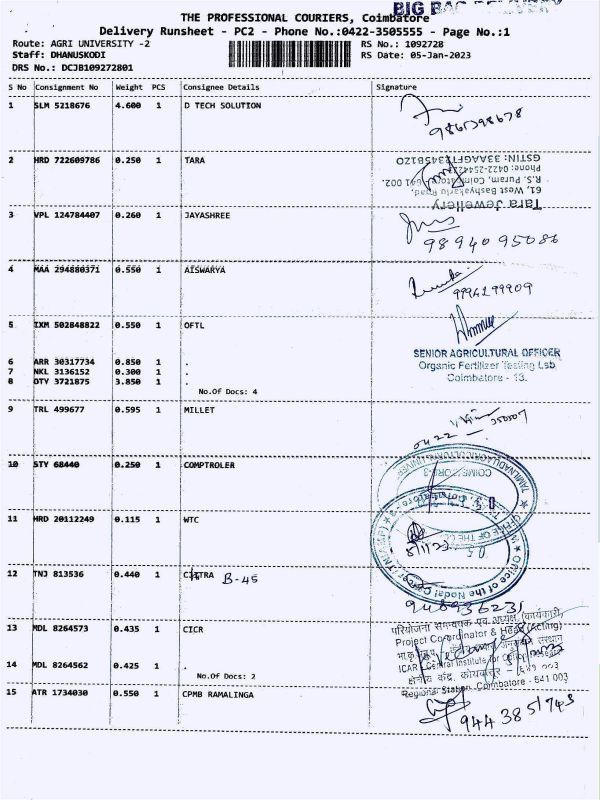 BIG BAG DELIVERY
THE PROFESSIONAL COURIERS, Coimbatore
Delivery Runsheet - PC2 - Phone No.:0422-3505555 - Page No.:1
Route: AGRI UNIVERSITY -2 RS No.: 1092728
Staff: DHANUSKODI RS Date: 05-Jan-2023
DRS No.: DCJB109272801
S No Consignment No Weight PCS Consignee Details Signature
1 SLM 5218676 4.600 1 D TECH SOLUTION
2 HRD 722609786 0.250 1 TARA
Tara Jewellery
61, West Bashyakarlu Road,
R.S. Puram, Coimbatore 641 002.
3 VPL 124784407 0.260 1 JAYASHREE
98940 95086
4 MAA 294880371 0.550 1 AISWARYA
9994299909
5 IXM 502848822 0.550 1 OFTL
SENIOR AGRICULTURAL OFFICER
Organic Fertilizer Testing Lab
Coimbatore - 13.
6 ARR 30317734 0.850 1 .
7 NKL 3136152 0.300 1 .
8 OTY 3721875 3.850 1 .
No.Of Docs: 4
9 TRL 499677 0.595 1 MILLET
0422
10 STY 68440 0.250 1 COMPTROLER
11 HRD 20112249 0.115 1 WTC
Office of the Nodal
12 TNJ 813536 0.440 1 CITRA B-45
13 MDL 8264573 0.435 1 CICR
परियोजना समन्वयक एवं अध्यक्ष (कार्यकारी)
Project Coordinator & Head (Acting)
ICAR - Central Institute for
14 MDL 8264562 0.425 1 .
No.Of Docs: 2
Regional Station, Coimbatore - 641 003
15 ATR 1734030 0.550 1 CPMB RAMALINGA
944 3851743